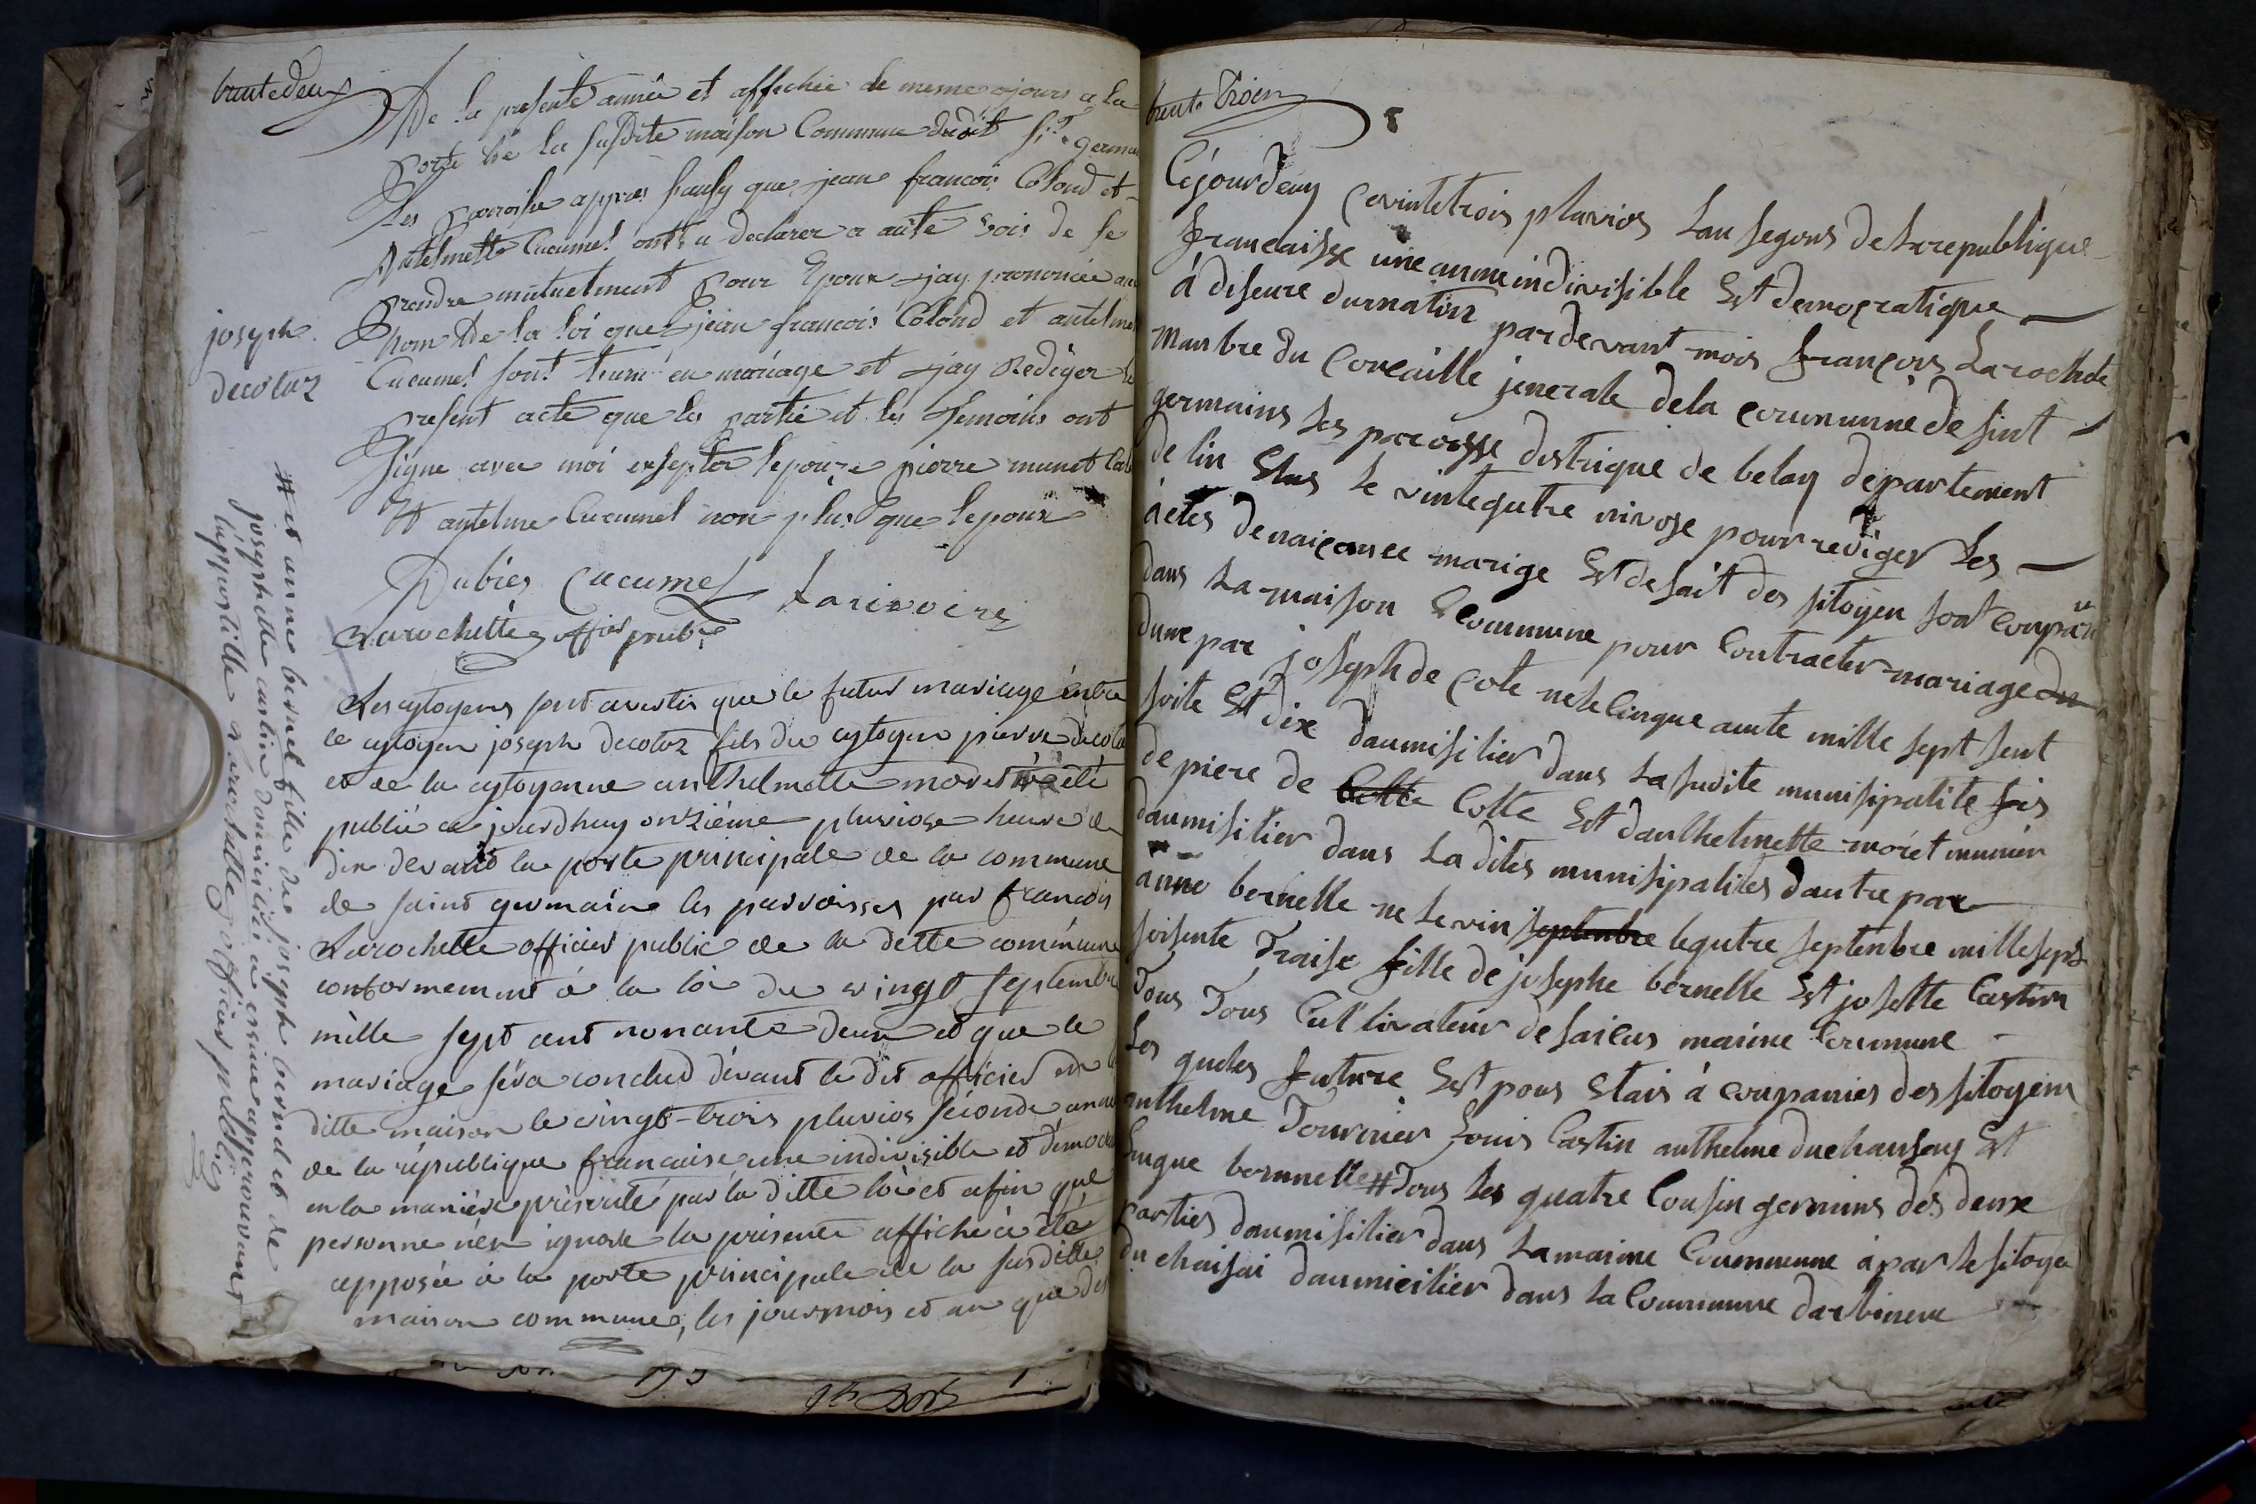 trente deux
De la presente année et affichée le meme jours a la
porte de la susdite maison Commune dudit St germain
Les paroisse appres sauly que jean francois Coland et
Antelmette Cucumel onts declarer a aute vois de se
prendre mutuelment pour Epoux jay prononcée au
nom De la loi que jean francois Coland et antelme
Cucumel sont unie en mariage et jay Rediger le
present acte que les partie et les Temoins ont
Signe avec moi exsepter lepouze pierre munet
Et antelme Cucumel non plus que lepoux
Dubies Cucumel Larivoire
Larochette offier public
joseph
decotaz
Les cytoyens sont avertis que le futur mariage entre
le cytoyen joseph decotaz fils du cytoyen pierre decota
et de la cytoyenne anthelmette moret a été
publié ce jourdhuy onzième pluviose heure de
dix devant la porte principale de la commune
de saint germain les parroisses par francois
Larochette officier public de la dette commune
conformement à la loi du vingt septembre
mille sept cent nonante deux et que le
mariage séra conclud dévant le dit officier en la
ditte maison le vingt-trois pluvios séconde année
de la république francaise une indivisible et démocra
en la maniére préscrité par la ditte loi et afin que
personne n'én ignore la présente affiche à été
apposée à la porte principale de la susditte
maison commune, les jour mois et an que des
# et anne bernel fille du joseph bernel et de
josephette castin domiciliés a essieu approuvant
l'appostille Larochette officier public
trente Troien
Cejourdeuy cevintetrois plavios Lan segons de La republique
francaisse une anme indivisible Est democratique
à diseure dumatin pardevant mois françois Larochete
manbre du Concaille jenerale dela communne de sint
germains Les paroisse distrique de belay departement
de lin Elus le vintequtre nivose pour rediger Les
àctes denaiçance marige Est desait des sitoyen sont conparu
dans La maison Commune pour Contracter mariage du
dune par joseph de Cote ne le cinque aute mille sept sent
soite Et dix daumisilier dans La sudite munisipalite fis
de piere de Cotte Cotte Est danthelmette moret munier
daumisilier dans La dites munisipalites dautre par
anne bernelle ne le vin septenbre lequtre septenbre mille sept
soisente Traise fille de josephe bernelle Est josette Castin
Tous Tous Cultivateur de saieus maime Commune
Les queles future Est pous Etais à conpanies des sitoyens
anthelme Tournier Louis Castin anthelme duchansay Est
bernnelle # Tous Les quatre Cousin germins des deux
parties daumisilier dans La maime Coummune a par le sitoye
du chaisai daumicilier dans La Coummune darbineux